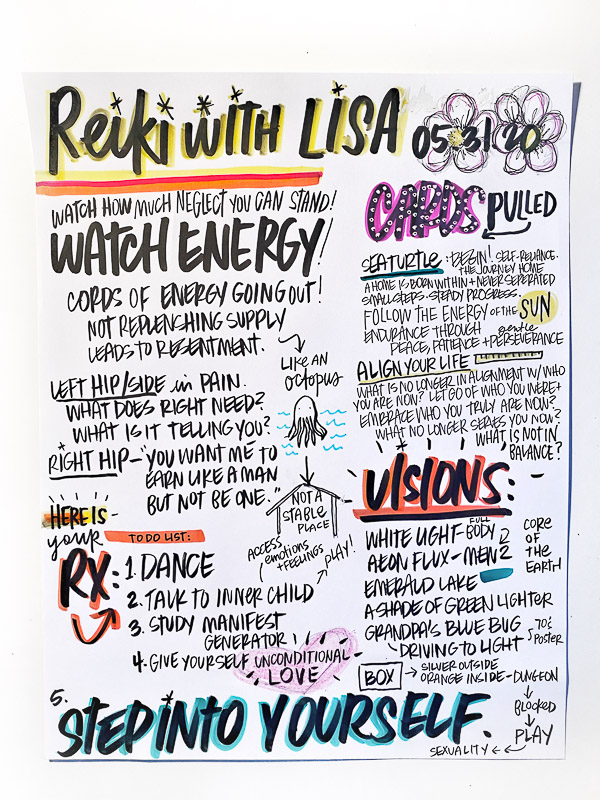 Reiki with LiSA 05 31 20
WATCH HOW MUCH NEGLECT YOU CAN STAND!
WATCH ENERGY!
CORDS OF ENERGY GOING OUT!
NOT REPLENSHING SUPPLY
LEADS TO RESENTMENT.
LIKE AN
octopus
LEFT HIP/SIDE in PAIN.
WHAT DOES RIGHT NEED?
WHAT IS IT TELLING YOU?
RIGHT HIP - "YOU WANT ME TO
EARN LIKE A MAN
BUT NOT BE ONE."
NOT A
STABLE
PLACE
ACCESS
emotions
+FEELINGS
PLAY!
HERE IS -
your
TO DO LIST:
RX:
1. DANCE
2. TALK TO INNER CHILD
3. STUDY MANIFEST
GENERATOR
4. GIVE YOURSELF UNCONDITIONAL
LOVE
CARDS PULLED
SEA TURTLE: BEGIN! SELF-RELIANCE.
THE JOURNEY HOME
A HOME IS BORN WITHIN + NEVER SEPERATED
SMALL STEPS - STEADY PROGRESS.
FOLLOW THE ENERGY OF THE SUN
ENDURANCE THROUGH gentle
PEACE, PATIENCE + PERSEVERANCE
ALIGN YOUR LIFE
WHAT IS NO LONGER IN ALIGNMENT W/ WHO
YOU ARE NOW? LET GO OF WHO YOU WERE +
EMBRACE WHO YOU TRULY ARE NOW?
WHAT NO LONGER SERVES YOU NOW?
WHAT IS NOT IN
BALANCE?
VISIONS:
WHITE LIGHT - FULL BODY
AEON FLUX - MEN 2
CORE
OF
THE
EARTH
EMERALD LAKE
A SHADE OF GREEN LIGHTER
GRANDPA'S BLUE BUG
DRIVING TO LIGHT
70's
POSTER
BOX
SILVER OUTSIDE
ORANGE INSIDE - DUNGEON
BLOCKED
PLAY
SEXUALITY
5. STEP INTO YOURSELF.